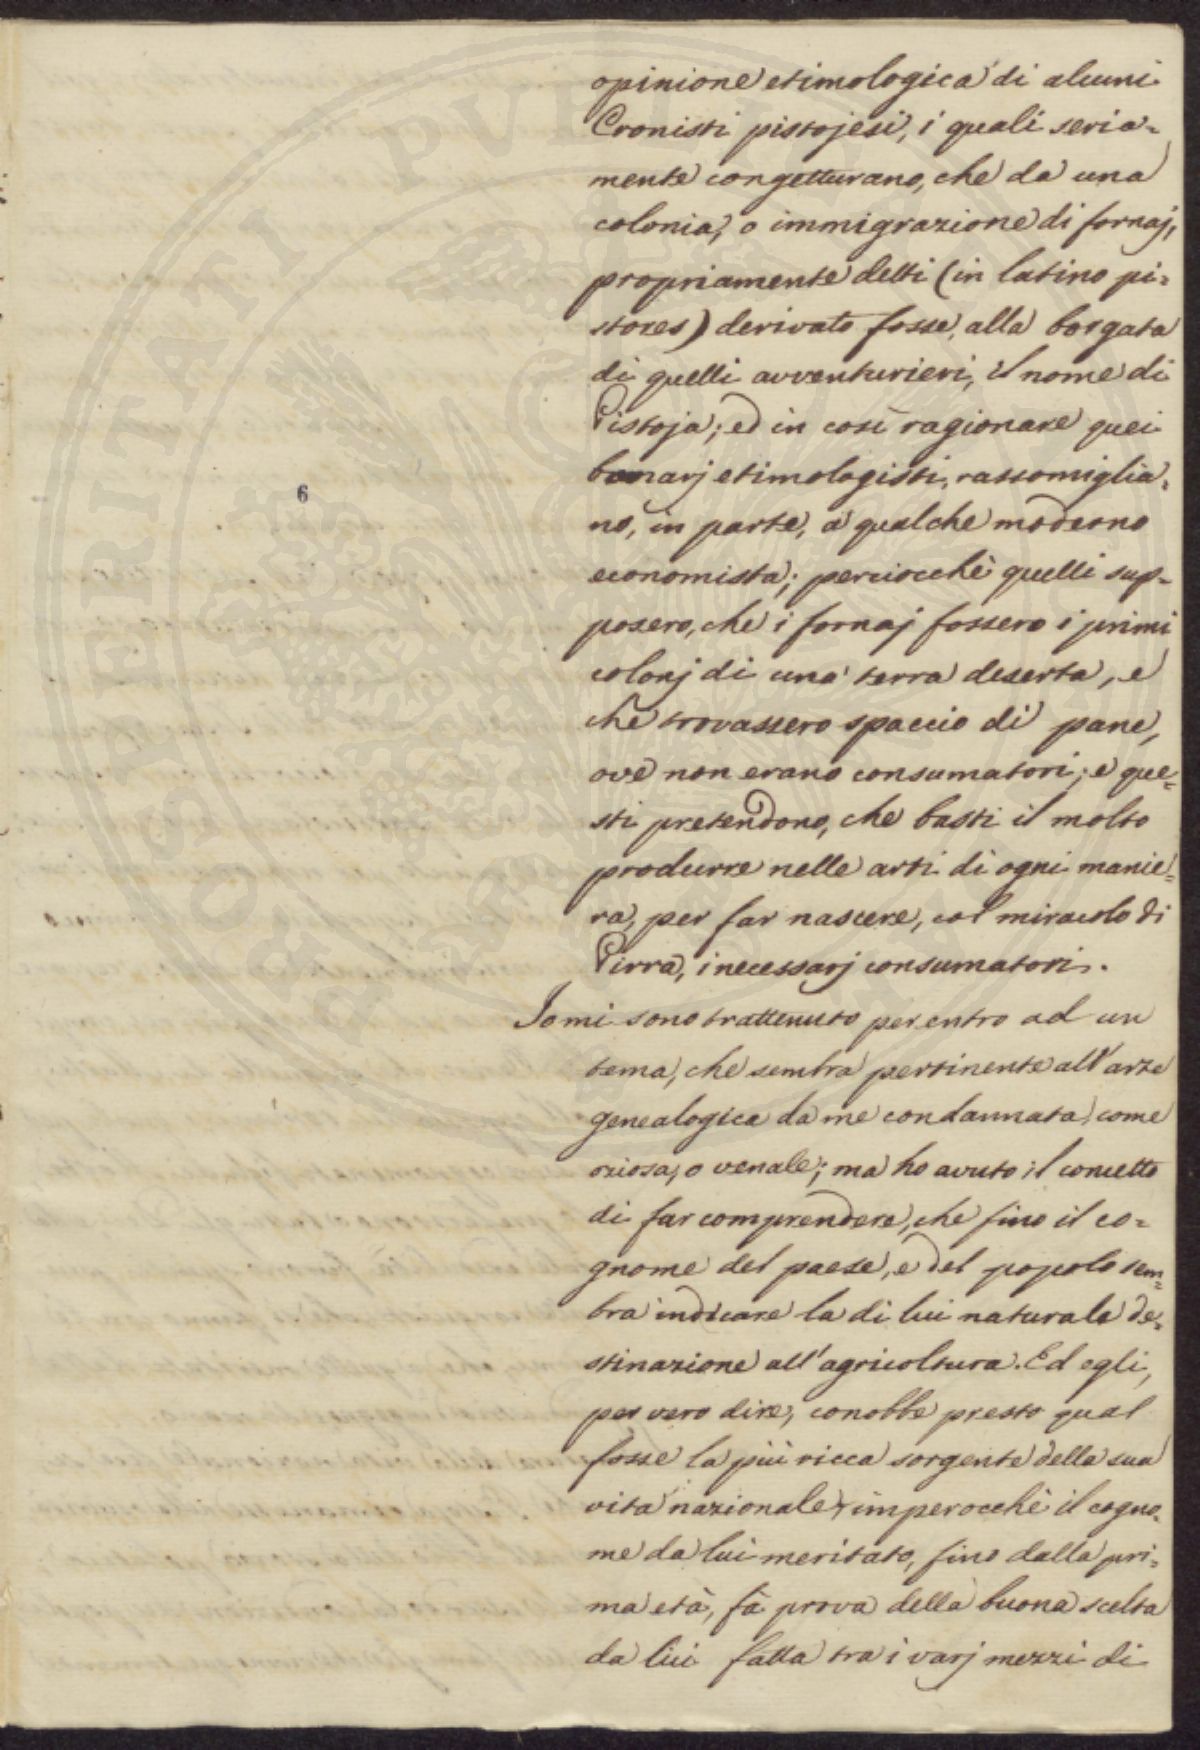 opinione etimologica di alcuni
Cronisti pistojesi, i quali seria=
mente congetturano, che da una
colonia, o immigrazione di fornaj,
propriamente detti (in latino pi=
stores) derivato fosse, alla borgata
di quelli avventurieri, il nome di
Pistoja; ed in così ragionare quei
bonarj etimologisti, rassomiglia=
no, in parte, a qualche moderno
economista; perciocchè quelli sup=
posero, che i fornaj fossero i primi
colonj di una terra deserta, e
che trovassero spaccio di pane,
ove non erano consumatori; e que=
sti pretendono, che basti il molto
produrre nelle arti di ogni manie=
ra, per far nascere, col miracolo di
Pirra, i necessarj consumatori.
6
Io mi sono trattenuto per entro ad un
tema, che sembra pertinente all'arte
genealogica da me condannata, come
oziosa, o venale; ma ho avuto il concetto
di far comprendere, che fino il co=
gnome del paese, e del popolo sem=
bra indicare la di lui naturale de=
stinazione all'agricoltura. Ed egli,
per vero dire, conobbe presto qual
fosse la più ricca sorgente della sua
vita nazionale; imperocchè il cogno=
me da lui meritato, fino dalla pri=
ma età, fà prova della buona scelta
da lui fatta tra i varj mezzi di
PROSPERITATI PVBLICAE